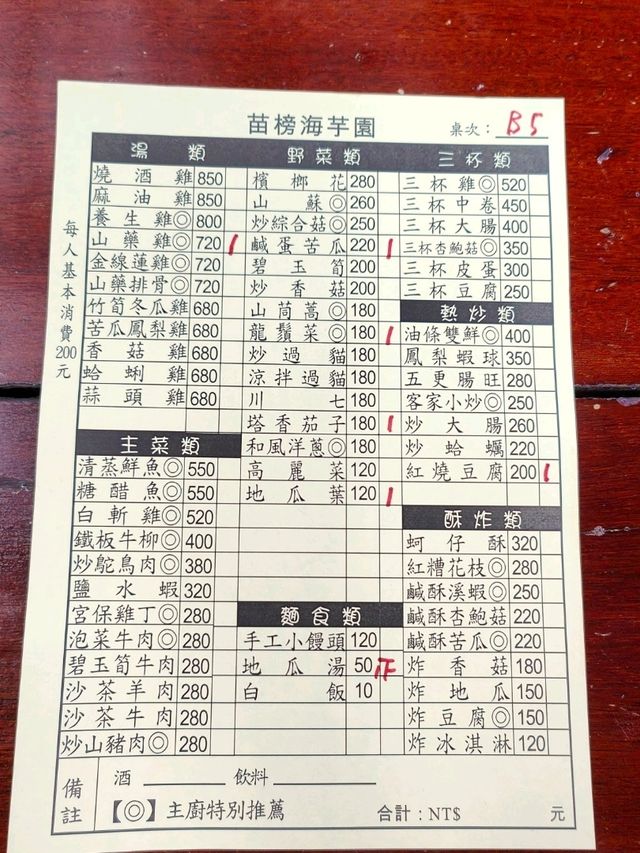 苗榜海芋園
桌次：B5
每人基本消費200元
湯類
燒酒雞 850
麻油雞 850
養生雞◎ 800
山藥雞◎ 720 1
金線蓮雞◎ 720
山藥排骨◎ 720
竹筍冬瓜雞 680
苦瓜鳳梨雞 680
香菇雞 680
蛤蜊雞 680
蒜頭雞 680
主菜類
清蒸鮮魚◎ 550
糖醋魚◎ 550
白斬雞◎ 520
鐵板牛柳◎ 400
炒鴕鳥肉◎ 380
鹽水蝦 320
宮保雞丁◎ 280
泡菜牛肉◎ 280
碧玉筍牛肉 280
沙茶羊肉 280
沙茶牛肉 280
炒山豬肉◎ 280
野菜類
檳榔花 280
山蘇◎ 260
炒綜合菇◎ 250
鹹蛋苦瓜 220 1
碧玉筍 200
炒香菇 200
山茼蒿◎ 180
龍鬚菜◎ 180 1
炒過貓 180
涼拌過貓 180
川七 180
塔香茄子 180 1
和風洋蔥◎ 180
高麗菜 120
地瓜葉 120 1
麵食類
手工小饅頭 120
地瓜湯 50 正
白飯 10
三杯類
三杯雞◎ 520
三杯中卷 450
三杯大腸 400
三杯杏鮑菇◎ 350
三杯皮蛋 300
三杯豆腐 250
熱炒類
油條雙鮮◎ 400
鳳梨蝦球 350
五更腸旺 280
客家小炒◎ 250
炒大腸 260
炒蛤蠣 220
紅燒豆腐 200 1
酥炸類
蚵仔酥 320
紅糟花枝◎ 280
鹹酥溪蝦◎ 250
鹹酥杏鮑菇 220
鹹酥苦瓜◎ 220
炸香菇 180
炸地瓜 150
炸豆腐◎ 150
炸冰淇淋 120
備註
酒 飲料
【◎】主廚特別推薦 合計：NT$ 元